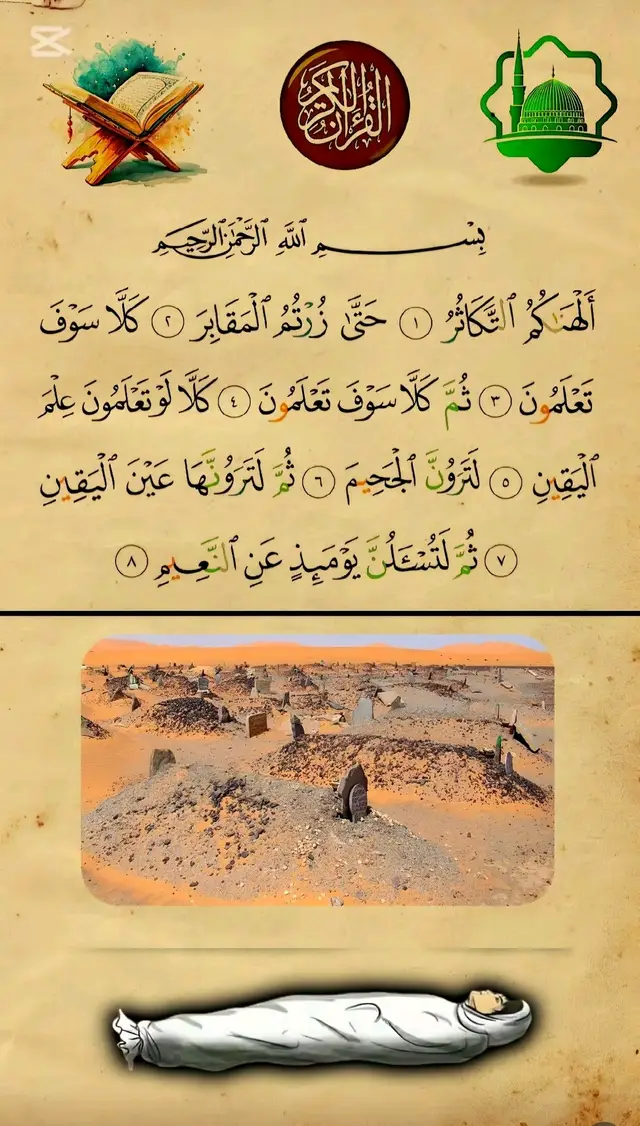 ٱلْقُرْءَانُ ٱلْكَرِيمُ
بِسْمِ ٱللَّهِ ٱلرَّحْمَٰنِ ٱلرَّحِيمِ
أَلْهَىٰكُمُ ٱلتَّكَاثُرُ ١ حَتَّىٰ زُرْتُمُ ٱلْمَقَابِرَ ٢ كَلَّا سَوْفَ
تَعْلَمُونَ ٣ ثُمَّ كَلَّا سَوْفَ تَعْلَمُونَ ٤ كَلَّا لَوْ تَعْلَمُونَ عِلْمَ
ٱلْيَقِينِ ٥ لَتَرَوُنَّ ٱلْجَحِيمَ ٦ ثُمَّ لَتَرَوُنَّهَا عَيْنَ ٱلْيَقِينِ
٧ ثُمَّ لَتُسْـَٔلُنَّ يَوْمَئِذٍ عَنِ ٱلنَّعِيمِ ٨